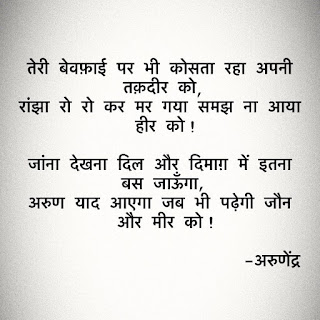 तेरी बेवफ़ाई पर भी कोसता रहा अपनी
तक़दीर को,
रांझा रो रो कर मर गया समझ ना आया
हीर को !
जांना देखना दिल और दिमाग़ में इतना
बस जाऊँगा,
अरुण याद आएगा जब भी पढ़ेगी जौन
और मीर को !
-अरुणेंद्र